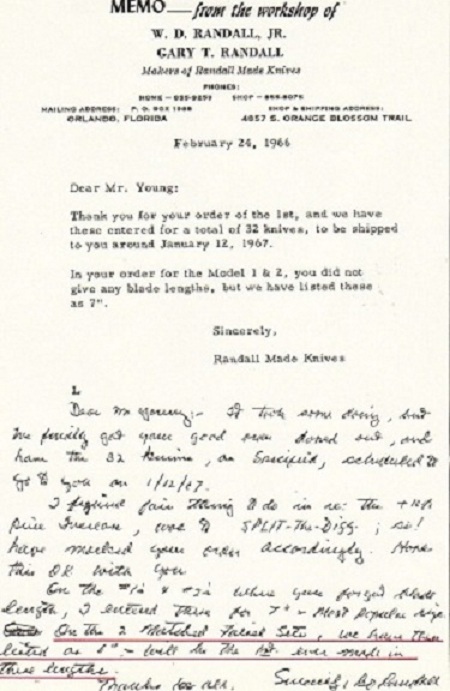 MEMO — from the workshop of
W. D. RANDALL, JR.
GARY T. RANDALL
Makers of Randall Made Knives
PHONES:
MAILING ADDRESS: P. O. BOX
SHOP & SHIPPING ADDRESS:
ORLANDO, FLORIDA
4857 S. ORANGE BLOSSOM TRAIL
February 24, 1966
Dear Mr. Young:
Thank you for your order of the 1st, and we have
these entered for a total of 32 knives, to be shipped
to you around January 12, 1967.
In your order for the Model 1 & 2, you did not
give any blade lengths, but we have listed these
as 7".
Sincerely,
Randall Made Knives
Dear Mr Young:- It took some doing, but
got your good doped out, and
have the 32 knives, as specified, scheduled to
go to you on 1/12/67.
I figured fair thing to do in re: the +10%
price increase, was to SPLIT-The-Diff; so I
have marked your order accordingly. Hope
this OK with you
On the #1s & #2s where you forgot blade
length, I entered them for 7" - Most popular size
On the 2 Matched Sets, we have them
listed as 8" - will be the 1st ever made in
these lengths.
Thanks for all,
Sincerely, Bo Randall